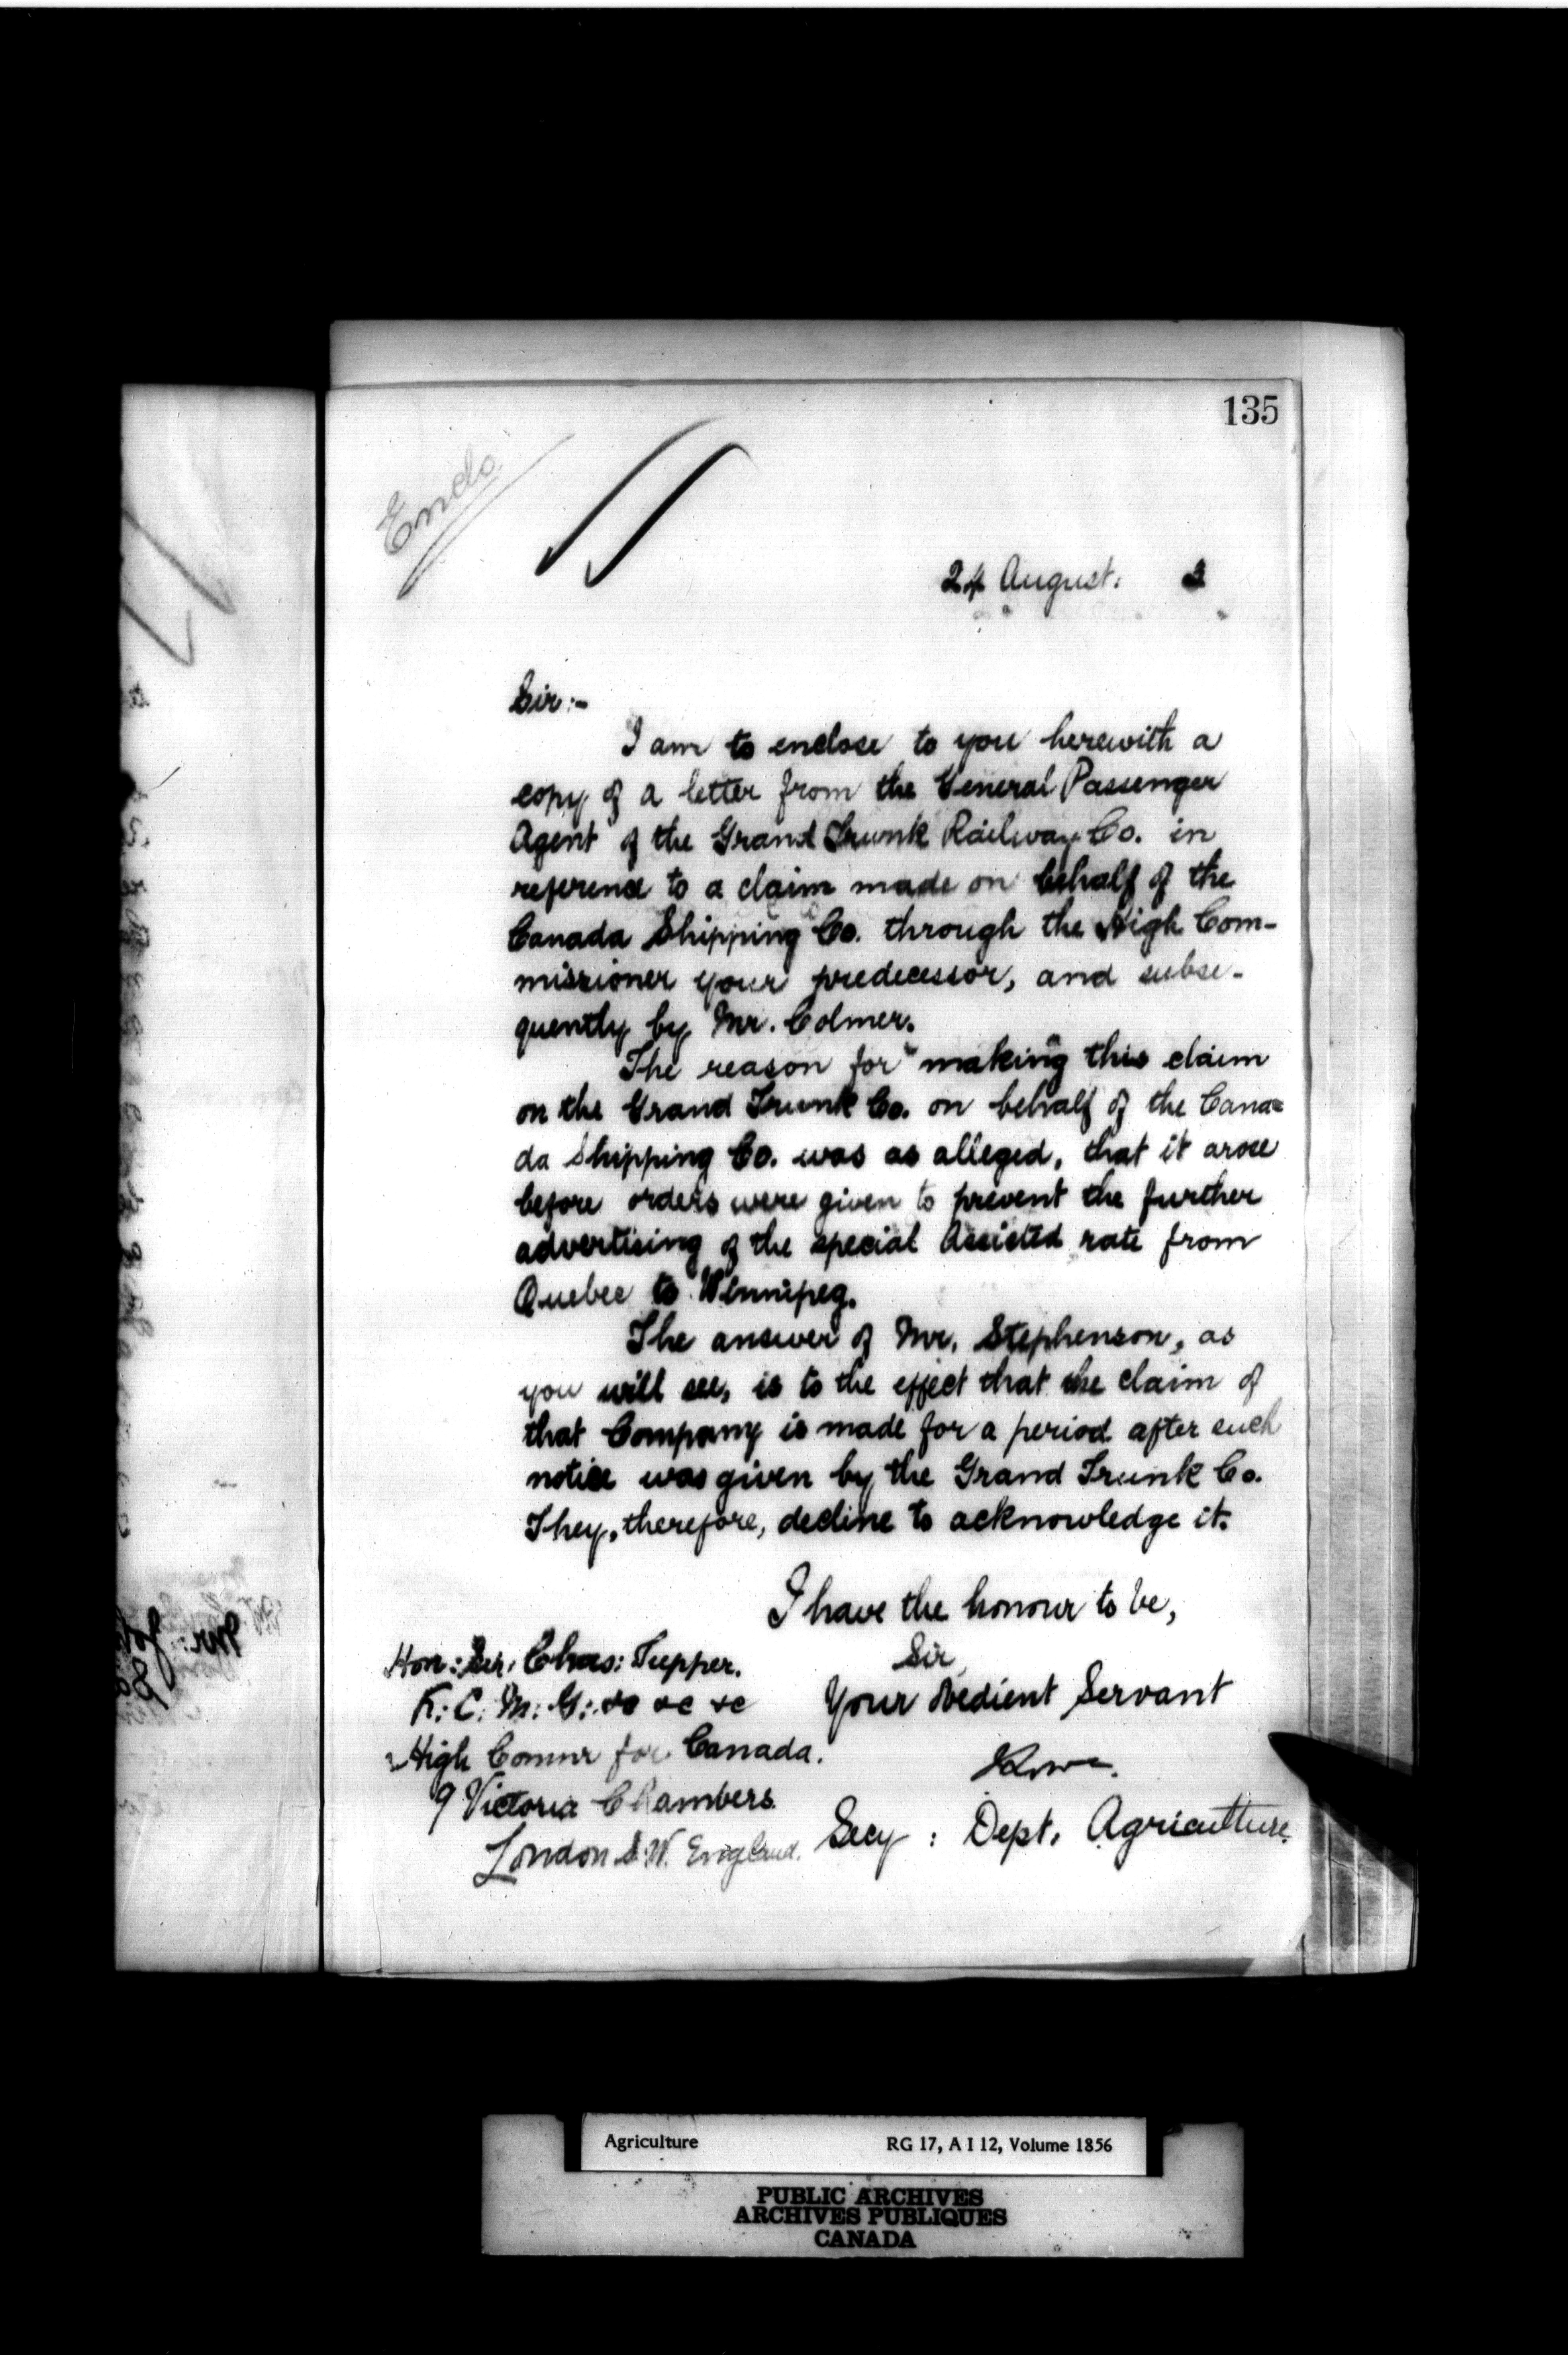 135
Enclo
24 August. 3
Sir:-
I am to enclose to you herewith a
copy of a letter from the General Passenger
Agent of the Grand Trunk Railway Co. in
reference to a claim made on behalf of the
Canada Shipping Co. through the High Com-
missioner your predecessor, and subse-
quently by Mr. Colmer.
The reason for making this claim
on the Grand Trunk Co. on behalf of the Cana=
da Shipping Co. was as alleged, that it arose
before orders were given to prevent the further
advertising of the special Assisted rate from
Quebec to Winnipeg.
The answer of Mr. Stephenson, as
you will see, is to the effect that the claim of
that Company is made for a period after such
notice was given by the Grand Trunk Co.
They, therefore, decline to acknowledge it.
I have the honour to be,
Sir,
Your obedient Servant
Secy: Dept. Agriculture.
Hon: Sir. Chas: Tupper.
K: C: M: G: &c &c &c
High Commr for Canada.
9 Victoria Chambers.
London S.W. England.
Agriculture RG 17, A I 12, Volume 1856
PUBLIC ARCHIVES
ARCHIVES PUBLIQUES
CANADA